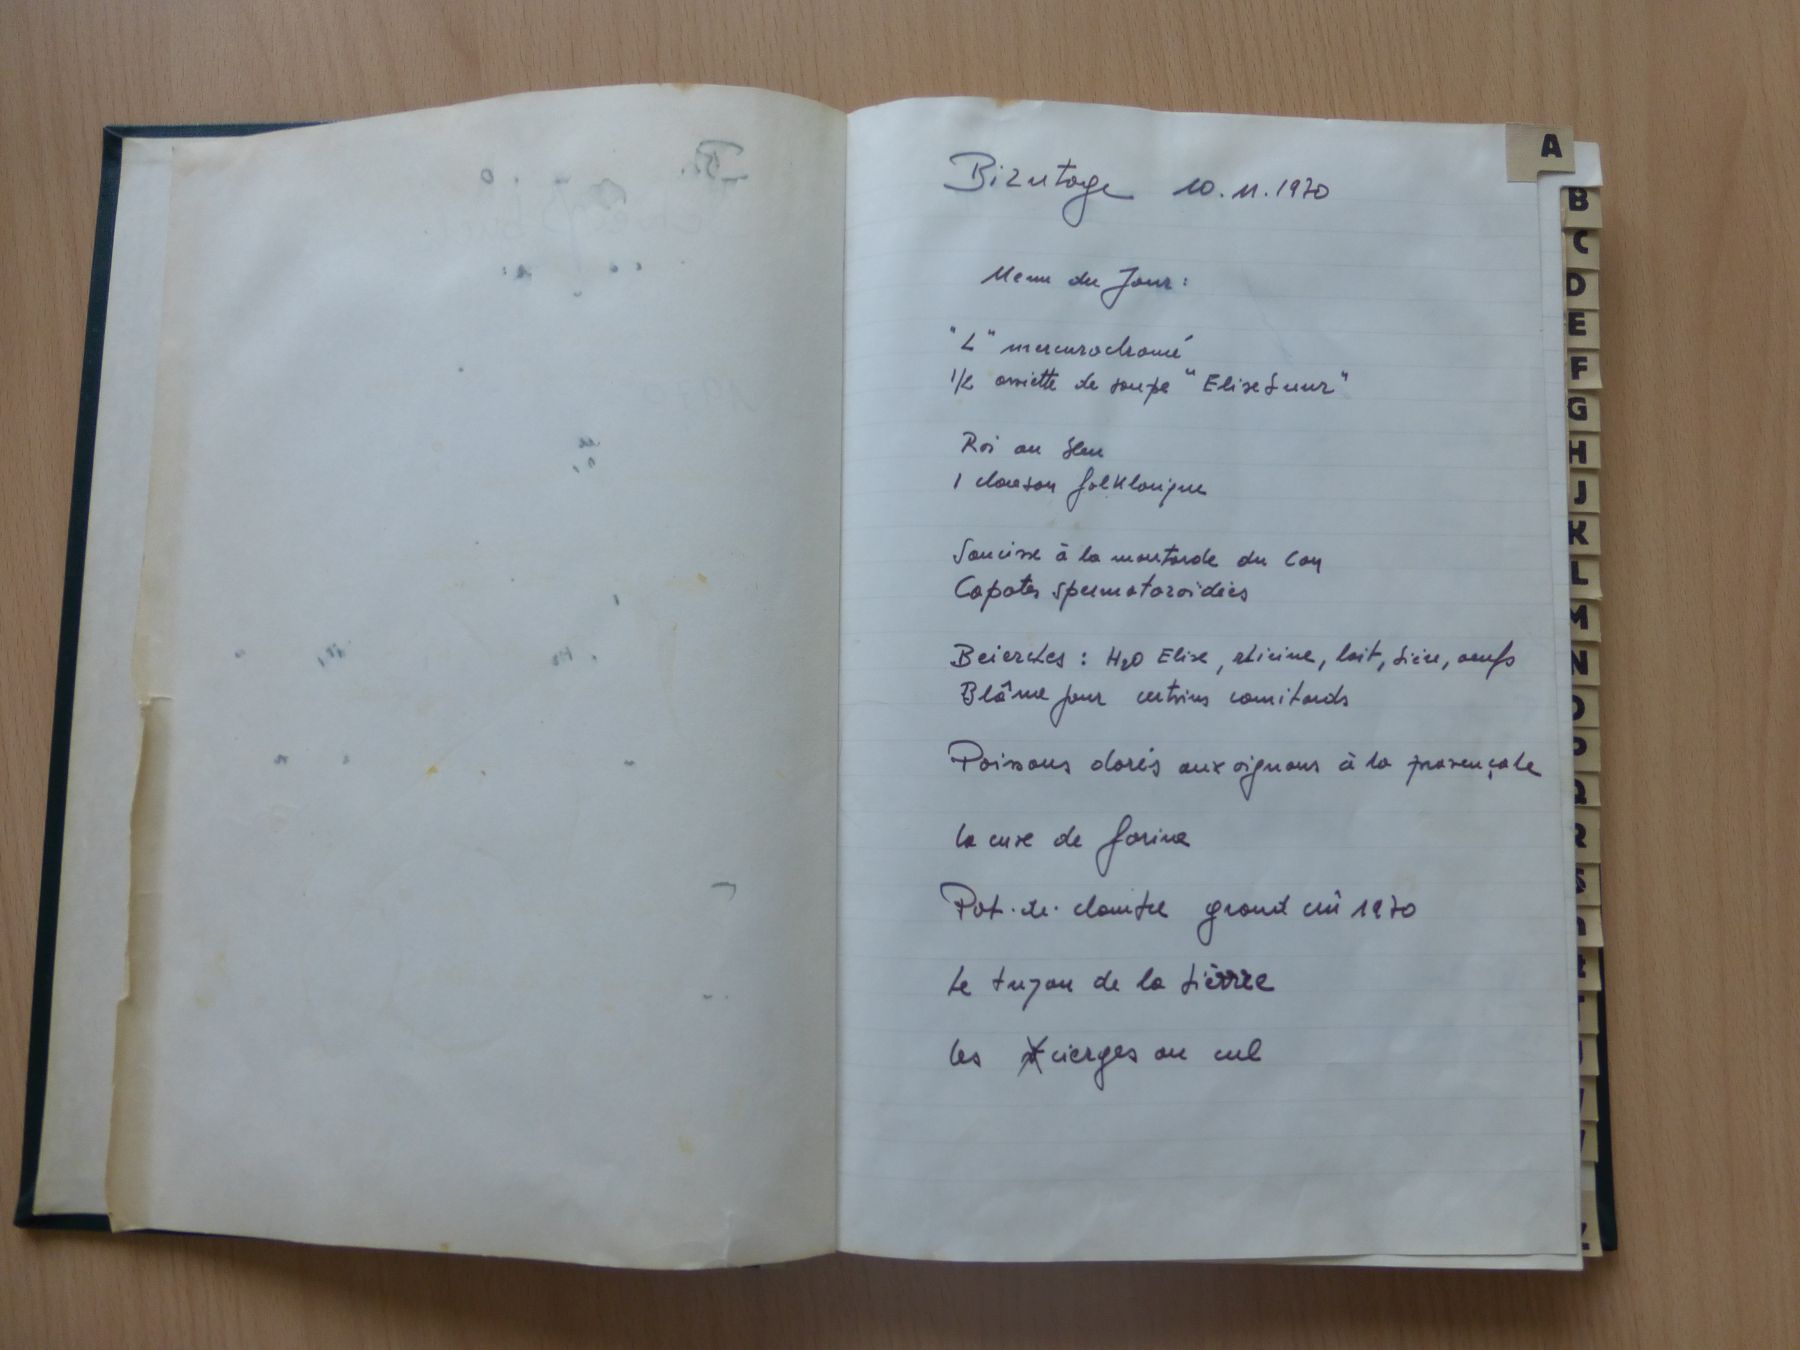 Bizutage 10.11.1970
Menu du Jour:
"L" mercurochromé
1/2 assiette de soupe "Elise
Roi au
1 chanson folklorique
Saucisse à la moutarde du
Capotes spermatozoïdées
: H2O Elise, ricine, lait, bière, oeufs
Blâme pour certains comitards
Poissons dorés aux oignons à la provençale
la cuve de farine
Pot.de.chambre grand crû 1970
Le tuyau de la bière
les cierges au cul
1970
A
B
C
D
E
F
G
H
J
K
L
M
N
O
P
Q
R
Z